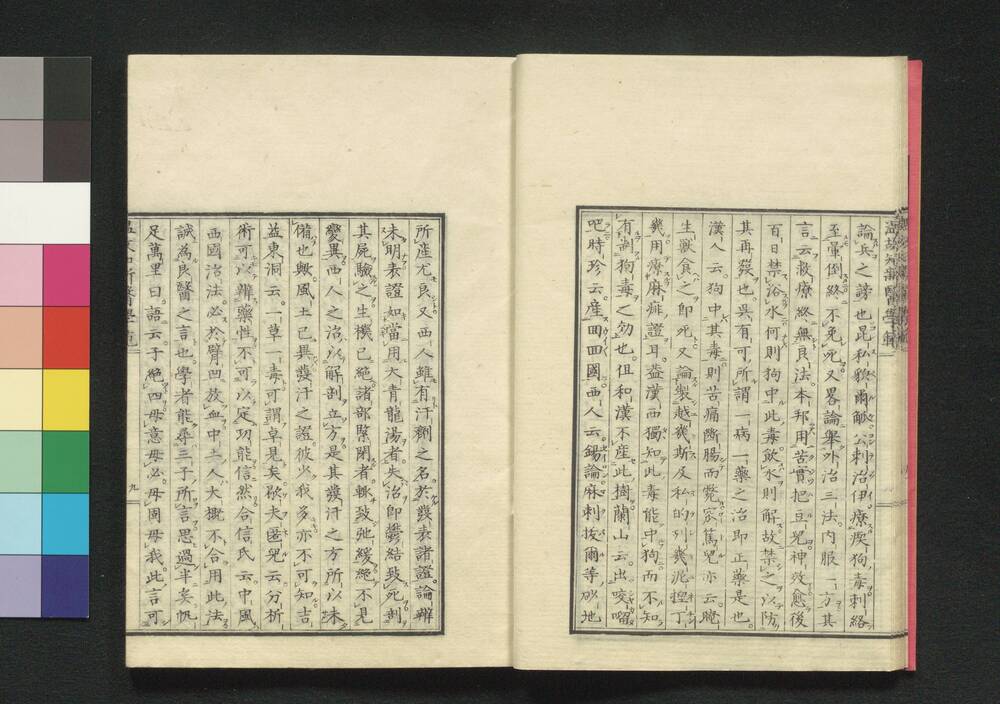 論兵之謗也昆私狼爾觖公刺治伊療疾狗毒刺絡
至暈倒終不免死又畧論舉外治三法内服一方其
言云救療終無良法本邦用苦實把豆児神效愈後
百日禁浴水何則狗中此毒飲水則解故禁之以防
其再發也畧有可所謂一病一藥之治即正藥是也
漢人云狗中其毒則苦痛斷腸而斃家篤児亦云晼
生獸食之即死又論製越幾斯及私的列幾泥捏丁
幾用療麻痱證耳葢漢西獨知此毒能中狗而不知
有制狗毒之効也但和漢不産此樹蘭山云出咬𠺕
吧時珍云産回回國西人云錫論麻刺拔爾等砂地
所産尤良又西人雖有汗劑之名於發表諸證論辨
未明表證如當用大青龍湯者失治即鬱結致死刳
其屍驗之生機已絶諸部緊閉者輙致弛緩絶不見
變異西人之治以解剖立方是其發汗之方所以未
備也歟風土已異發汗之證彼少我多亦不可知吉
益東洞云一草一毒可謂卓見矣歇夫匿児云分析
術可以辨藥性不可以定功能信然合信氏云中風
西國治法必於臂凹放血中土人大概不合用此法
誠為良醫之言也學者能尋三子所言思過半矣帆
足萬里曰語云子絶四毋意毋必毋固毋我此言可
九